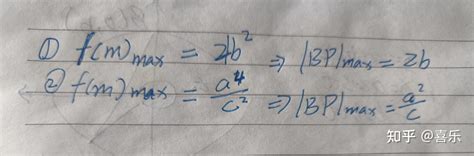 ① f(m)max = 4b² ⇒ |BP|max = 2b
② f(m)max = a⁴/c² ⇒ |BP|max = a²/c
知乎 @喜乐